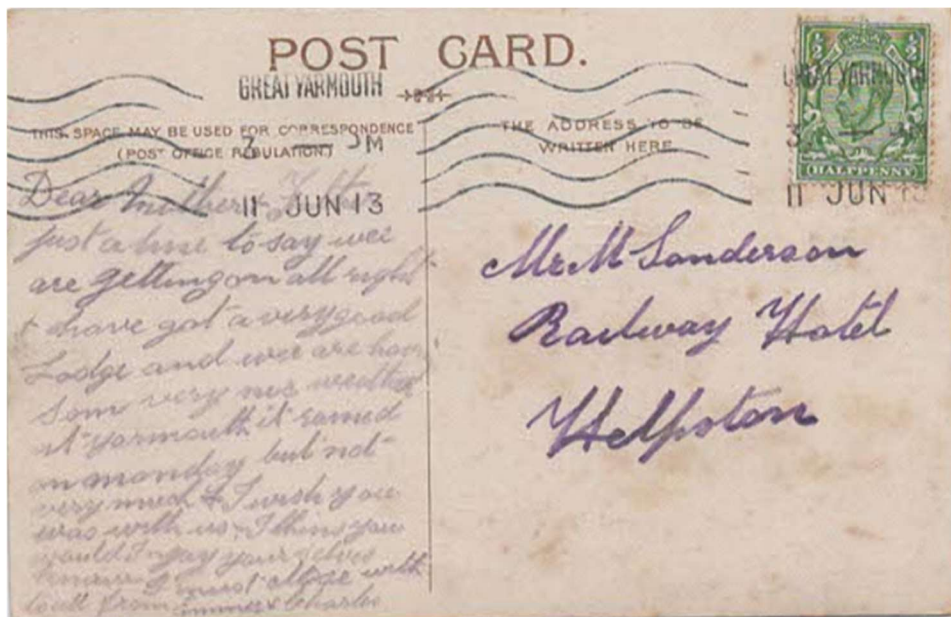 POST CARD.
GREAT YARMOUTH
3 — PM
11 JUN 13
THIS SPACE MAY BE USED FOR CORRESPONDENCE
(POST OFFICE REGULATION.)
Dear Mother & Father
just a line to say wee
are getting on all right
& have got a very good
Lodge and wee are
som very nice
at yarmouth it rained
on monday but not
very much & I wish you
was with us I think you
would Injoy your selves
must close with
from & Charles
THE ADDRESS TO BE
WRITTEN HERE.
Mr M Sanderson
Railway Hotel
Helpston
½ ½
HALFPENNY
GREAT YARMOUTH
3 — PM
11 JUN